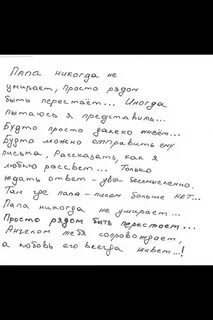 Папа никогда не
умирает, просто рядом
быть перестаёт... Иногда
пытаюсь я представить...
Будто просто далеко живёт...
Будто можно отправить ему
письма, Рассказать, как я
люблю рассвет... Только
ждать ответ - увы бессмысленно.
Там где папа - писем больше нет...
Папа никогда не умирает...
Просто рядом быть перестает...
Ангелом тебя сопровождает,
а любовь его всегда живет...!